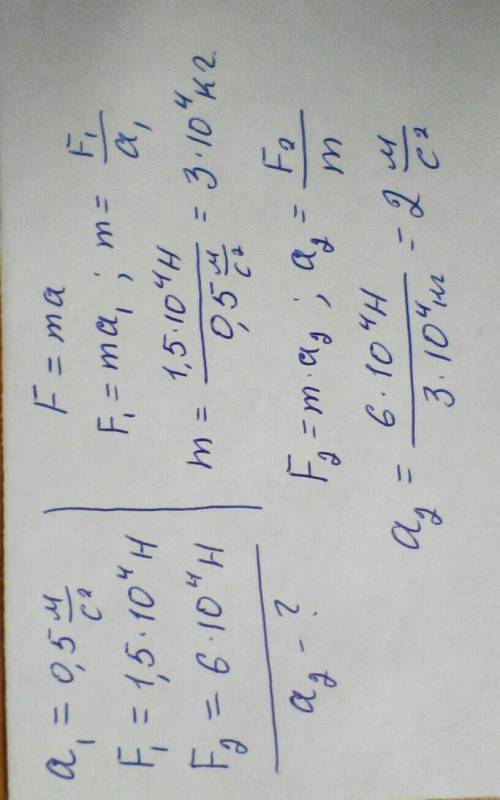 a₁ = 0,5 м/с²
F₁ = 1,5·10⁴ Н
F₂ = 6·10⁴ Н
a₂ - ?
F = ma
F₁ = ma₁ ; m = F₁/a₁
m = 1,5·10⁴ Н / 0,5 м/с² = 3·10⁴ кг
F₂ = m·a₂ ; a₂ = F₂/m
a₂ = 6·10⁴ Н / 3·10⁴ кг = 2 м/с²